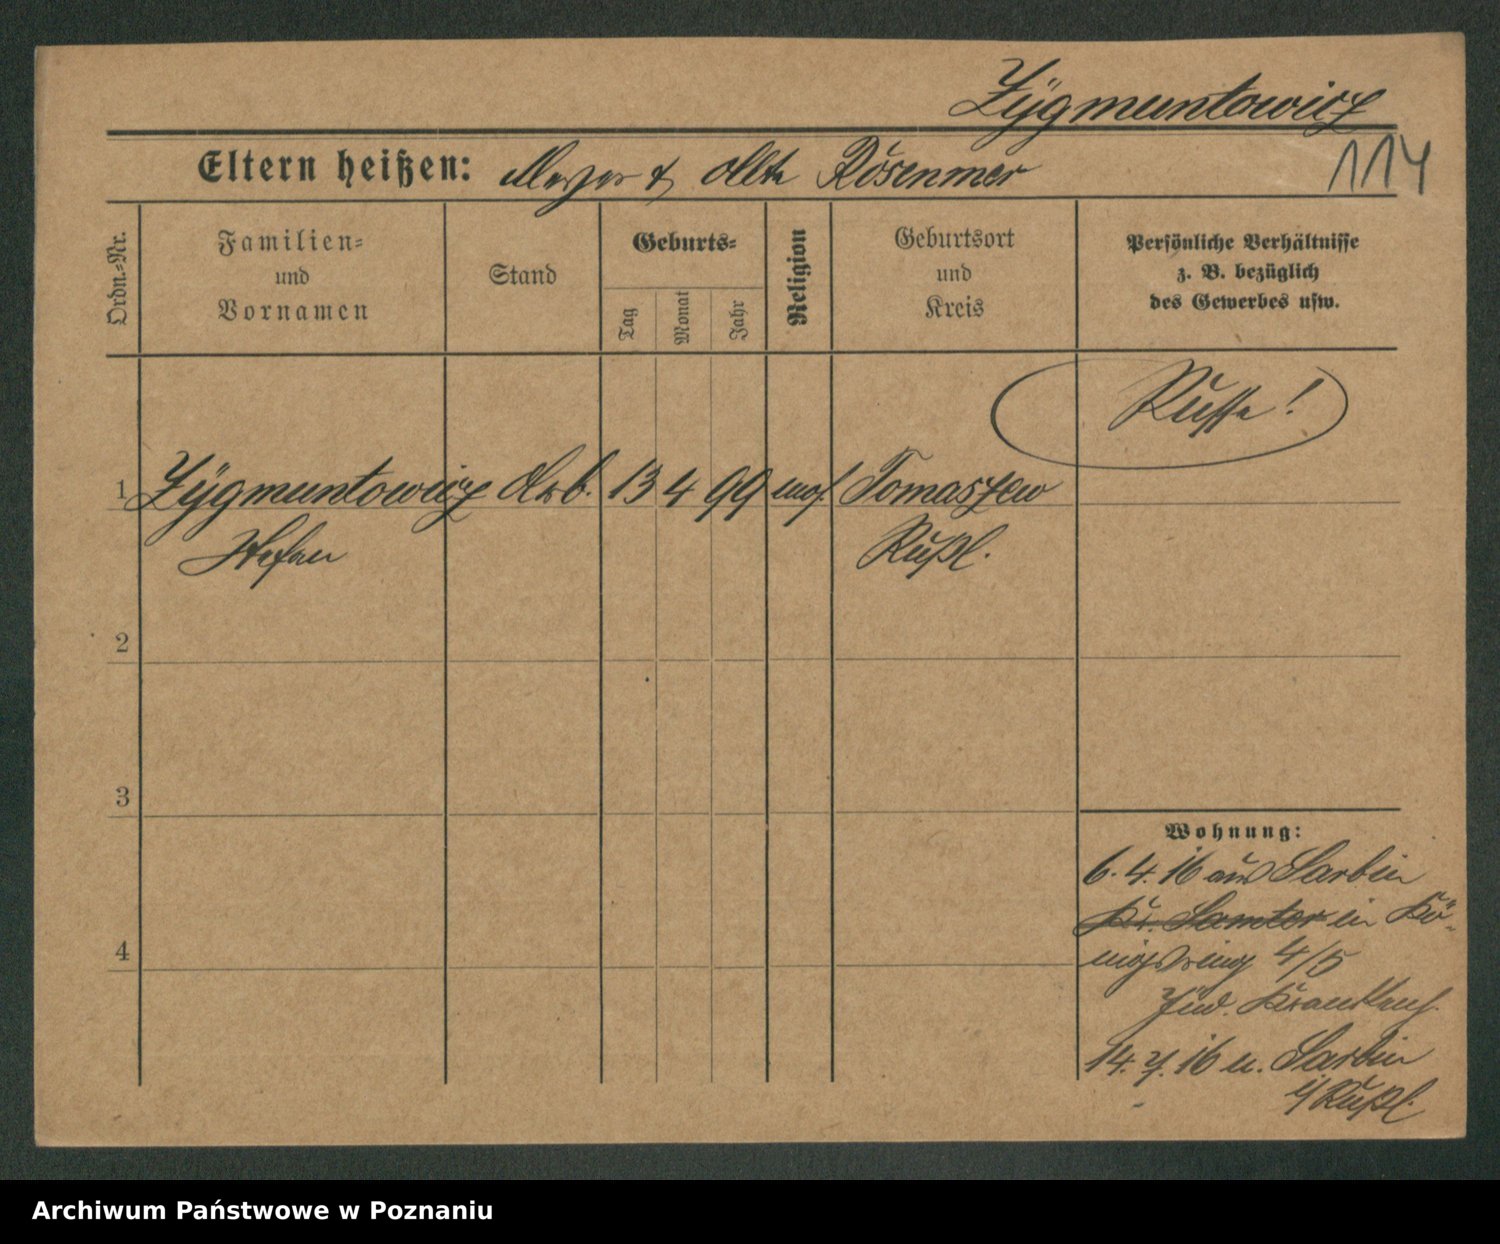 Zÿgmuntowicz
Eltern heißen: Meyer & Rosenmer
114
Ordn.-Nr.
Familien-
und
Vornamen
Stand
Geburts-
Tag
Monat
Jahr
Religion
Geburtsort
und
Kreis
Persönliche Verhältnisse
z. B. bezüglich
des Gewerbes usw.
Russe!
1 Zÿgmuntowicz Arb. 13 4 99 mos. Tomaszew
Stefan Rußl.
2
3
4
Wohnung:
6. 4. 16 aus Sarbin
Kr. Samter in Kö-
nigsring 4/5
Jüd. Krankenh.
14. 7. 16 n. Sarbin
i/Rußl.
Archiwum Państwowe w Poznaniu